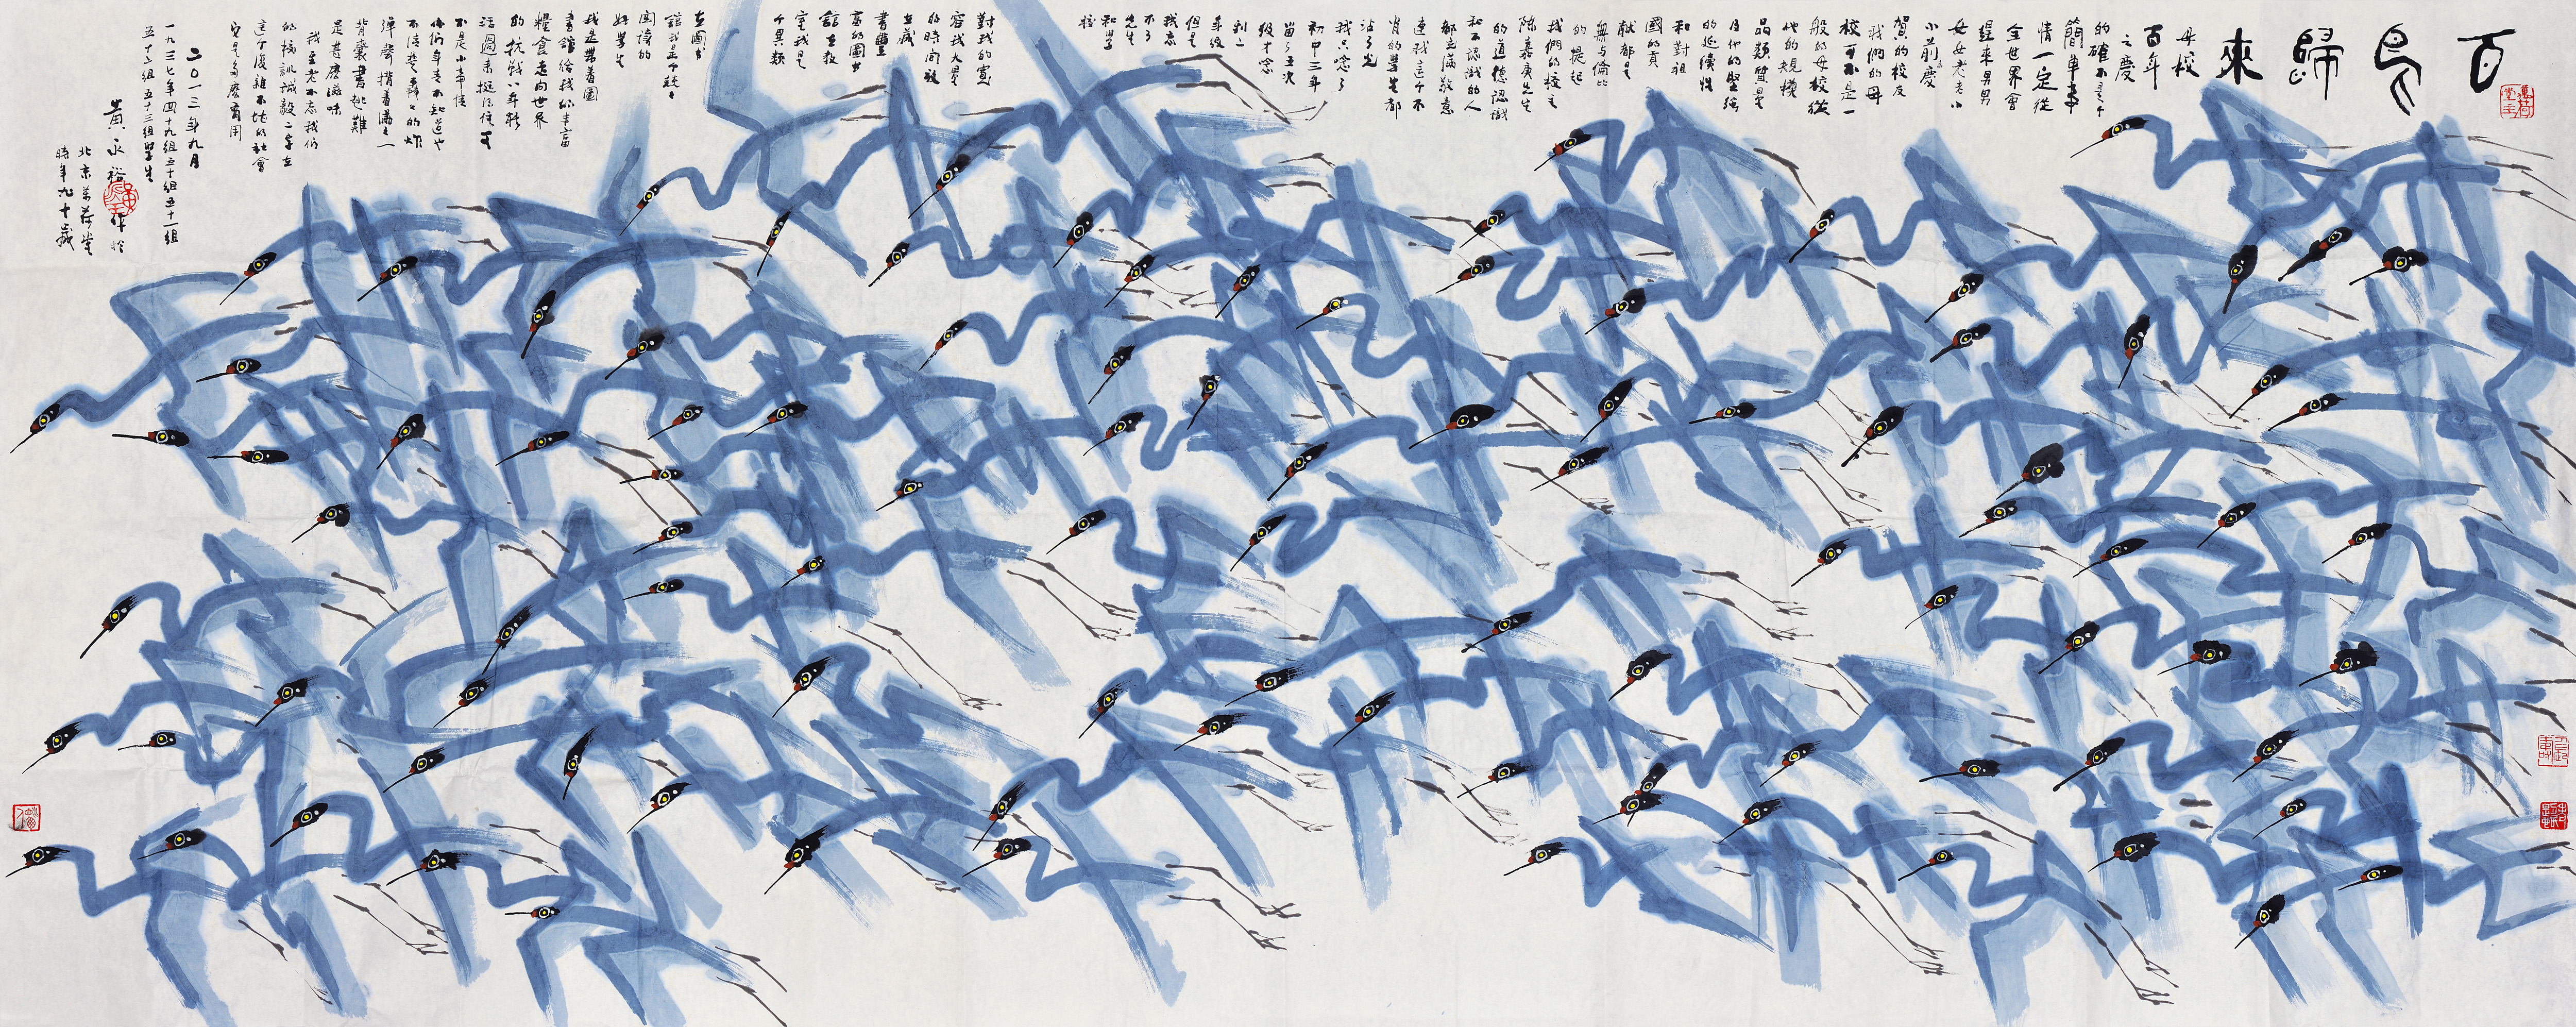 百鳥歸來
母校
百年
之慶
的確不是个
簡單事
情一定從
全世界會
趕來男男
女女老老小
小前慶
賀的校友
我們的母
校可不是一
般的母校從
他的規模
品類質量
及他的堅強
的延續性
和對祖
國的貢
献都是
無与倫比
的提起
我們的校主
陳嘉庚先生
的道德認識
和不認識的人
都充滿敬意
連我這个不
肖的學生都
沾了光
我只唸了
初中三年
留了五次
級才唸
到二
年级
但是
我忘
不了
先生
和學
校
對我的寬
容我大量
的時間放
在藏
書豐
富的圖書
館在教
室我是
个異類
在圖書
館我是个
閱讀的
好學生
我是帶着圖
書館給我的丰富
糧食走向世界
的抗戰八年
活過來挺

不是小事情
你們年青不知道也
不清楚在
彈聲揹着滿滿一
背囊書逃難
是甚麼滋味
我至老不忘我們
的校訓誠毅二字在
這个復雜不堪的社會
它是多麼有用
二〇一三年九月
一九三七年四十九組五十組五十一組
五十二組五十三組學生
黃永裕作於
北京萬荷堂
時年九十歲